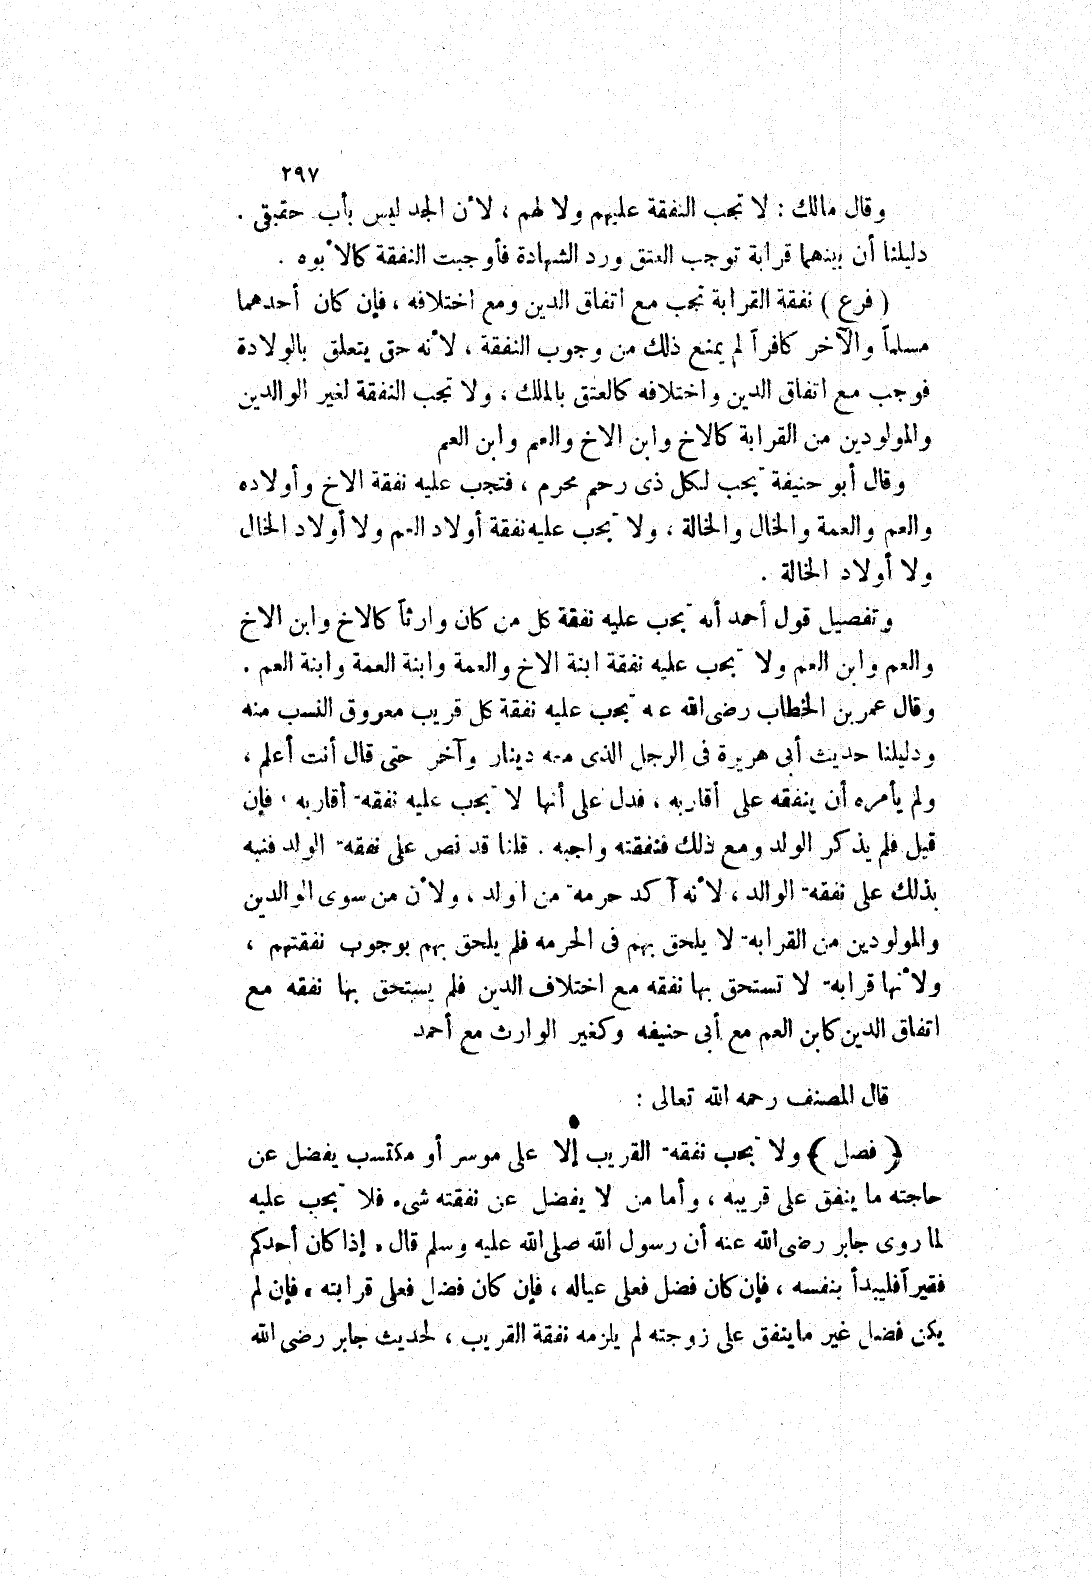 ٢٩٧
وقال مالك : لا تجب النفقة عليهم ولا لهم ، لأن الجد ليس بأب حقيقى .
دليلنا أن بينهما قرابة توجب العتق ورد الشهادة فأوجبت النفقة كالأبوه .
( فرع ) نفقة القرابة تجب مع اتفاق الدين ومع اختلافه ، فإن كان أحدهما
مسلماً والآخر كافراً لم يمنع ذلك من وجوب النفقة ، لأنه حق يتعلق بالولادة
فوجب مع اتفاق الدين واختلافه كالعتق بالملك ، ولا تجب النفقة لغير الوالدين
والمولودين من القرابة كالاخ وابن الاخ والعم وابن العم
وقال أبو حنيفة يجب لكل ذى رحم محرم ، فتجب عليه نفقة الاخ وأولاده
والعم والعمة والخال والخالة ، ولا يجب عليه نفقة أولاد العم ولا أولاد الخال
ولا أولاد الخالة .
وتفصيل قول أحمد أنه يجب عليه نفقة كل من كان وارثاً كالاخ وابن الاخ
والعم وابن العم ولا يجب عليه نفقة ابنة الاخ والعمة وابنة العمة وابنة العم .
وقال عمر بن الخطاب رضى الله عنه يجب عليه نفقة كل قريب معروق النسب منه
ودليلنا حديث أبى هريرة فى الرجل الذى معه دينار وآخر حتى قال أنت أعلم ،
ولم يأمره أن ينفقه على أقاربه ، فدل على أنها لا يجب عليه نفقة أقاربه ، فإن
قيل فلم يذكر الولد ومع ذلك فنفقته واجبه . قلنا قد نص على نفقة الولد فنبه
بذلك على نفقة الوالد ، لأنه آكد حرمة من الولد ، ولأن من سوى الوالدين
والمولودين من القرابة لا يلحق بهم فى الحرمه فلم يلحق بهم بوجوب نفقتهم ،
ولأنها قرابة لا تستحق بها نفقه مع اختلاف الدين فلم يستحق بها نفقه مع
اتفاق الدين كابن العم مع أبى حنيفه وكغير الوارث مع أحمد
قال المصنف رحمه الله تعالى :
﴿ فصل ﴾ ولا يجب نفقة القريب إلا على موسر أو مكتسب يفضل عن
حاجته ما ينفق على قريبه ، وأما من لا يفضل عن نفقته شىء فلا يجب عليه
لما روى جابر رضى الله عنه أن رسول الله صلى الله عليه وسلم قال « إذا كان أحدكم
فقيراً فليبدأ بنفسه ، فإن كان فضل فعلى عياله ، فإن كان فضل فعلى قرابته » فإن لم
يكن فضل غير ما ينفق على زوجته لم يلزمه نفقة القريب ، لحديث جابر رضى الله